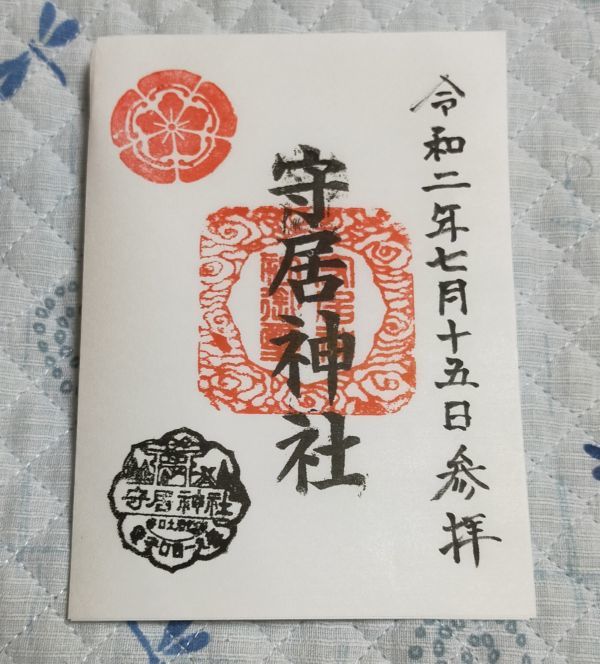 令和二年七月十五日参拝
守居神社
守居神社